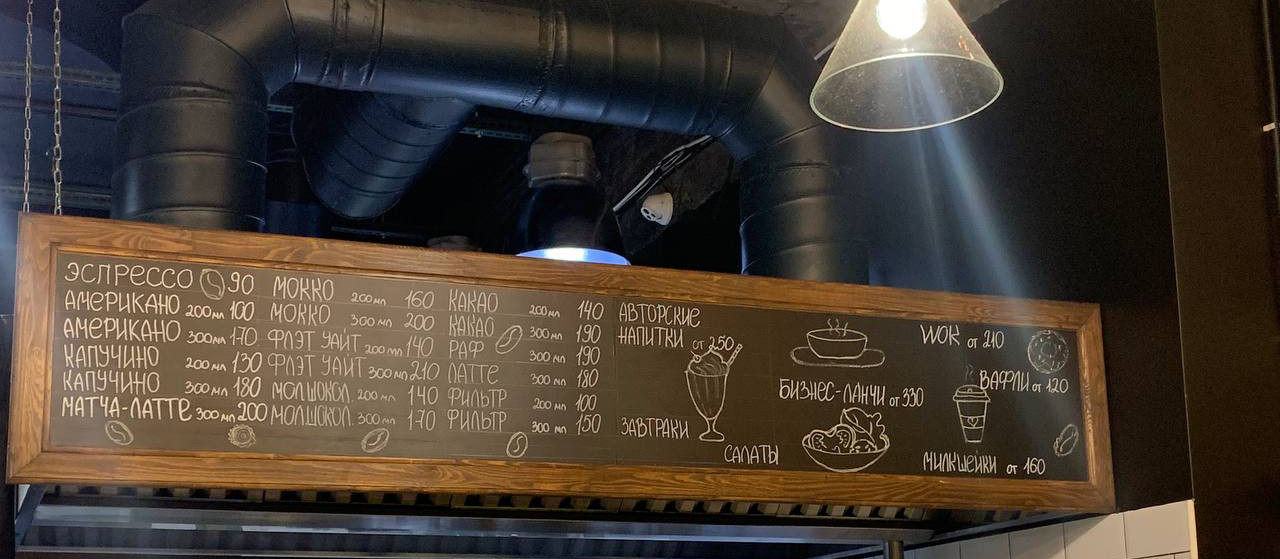 ЭСПРЕССО 90
АМЕРИКАНО 200мл 100
АМЕРИКАНО 300мл 170
КАПУЧИНО 200 мл 130
КАПУЧИНО 300 мл 180
МАТЧА-ЛАТТЕ 300 мл 200
МОККО 200 мл 160
МОККО 300 мл 200
ФЛЭТ УАЙТ 200 мл 140
ФЛЭТ УАЙТ 300 мл 210
МОЛ.ШОКОЛ. 200 мл 140
МОЛ.ШОКОЛ. 300 мл 170
КАКАО 200 мл 140
КАКАО 300 мл 190
РАФ 300 мл 190
ЛАТТЕ 300 мл 180
ФИЛЬТР 200 мл 100
ФИЛЬТР 300 мл 150
АВТОРСКИЕ
НАПИТКИ от 250
ЗАВТРАКИ
САЛАТЫ
БИЗНЕС-ЛАНЧИ от 330
WOK от 210
ВАФЛИ от 120
МИЛКШЕЙКИ от 160